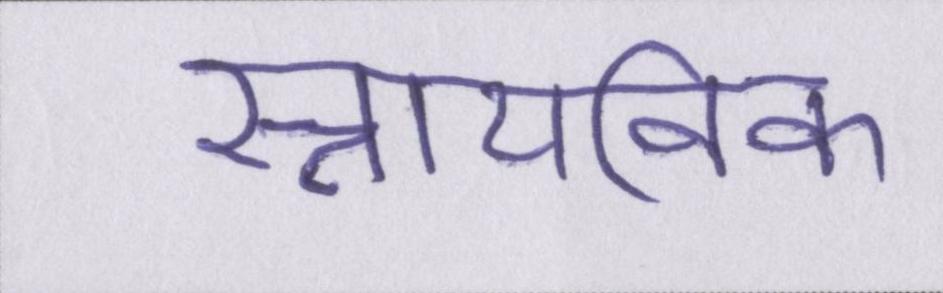 स्नायविक